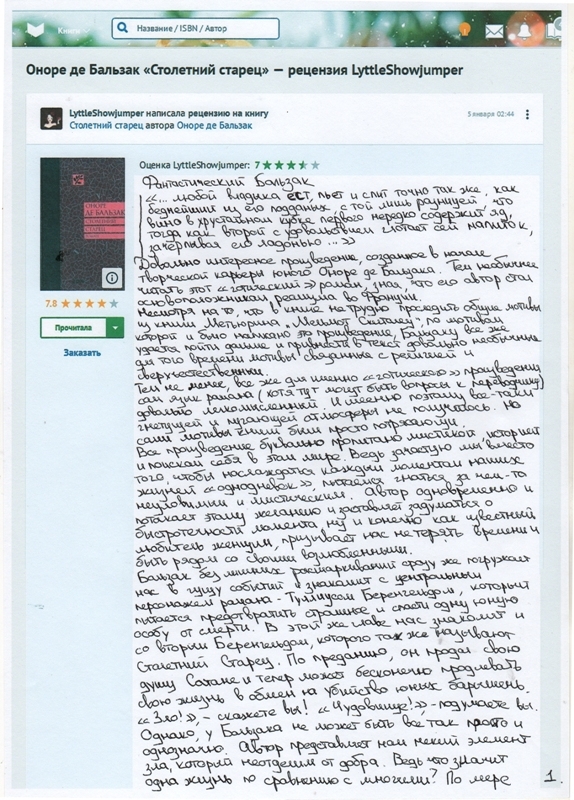 Книги
Название / ISBN / Автор
Оноре де Бальзак «Столетний старец» — рецензия LyttleShowjumper
LyttleShowjumper написала рецензию на книгу
5 января 02:44
Столетний старец автора Оноре де Бальзак
ОНОРЕ
ДЕ БАЛЬЗАК
СТОЛЕТНИЙ
СТАРЕЦ
7.8
Прочитала
Заказать
Оценка LyttleShowjumper: 7
Фантастический Бальзак
«... любой владыка ест, пьет и спит точно так же, как
беднейший из его подданых, с той лишь разницей, что
вино в хрустальном кубке первого нередко содержит яд,
тогда как второй с удовольствием глотает сей напиток,
зачерпывая его ладонью...»
Довольно интересное произведение, созданное в начале
творческой карьеры юного Оноре де Бальзака. Тем необычнее
читать этот «готический» роман, зная, что его автор стал
основоположником реализма во Франции.
Несмотря на то, что в книге не трудно проследить общие мотивы
из книги Метьюрина "Мельмот Скиталец", по мотивам
которой и было написано это произведение, Бальзаку все же
удается пойти дальше и привнести в текст довольно необычные
для того времени мотивы связанные с религией и
сверхъестественным.
Тем не менее, все же для именно «готического» произведения
сам язык романа (хотя тут могут быть вопросы к переводчику)
довольно легкомысленный. И именно поэтому все-таки
гнетущей и пугающей атмосферы не получилось. Но
сами мотивы книги были просто потрясающи.
Все произведение буквально пропитано мистикой, историей
и поиском себя в этом мире. Ведь зачастую мы вместо
того, чтобы наслаждаться каждым моментом наших
жизней «однодневок», пытаемся гнаться за чем-то
неуловимым и мистическим. Автор одновременно и
потакает этому желанию и заставляет задуматься о
быстротечности момента, ну и конечно как известный
любитель женщин, призывает нас не терять времени и
быть рядом со своими возлюбленными.
Бальзак без лишних расшаркиваний сразу же погружает
нас в гущу событий и знакомит с центральным
персонажем романа - Туллиусом Беренгельдом, который
пытается предотвратить страшное и спасти одну юную
особу от смерти. В этой же главе нас знакомит и
со вторым Беренгельдом, которого так же называют
Столетний Старец. По преданию, он продал свою
душу Сатане и тепер может бесконечно продлевать
свою жизнь в обмен на убийство юных барышень.
«Зло!», - скажете вы! «Чудовище!» - подумаете вы.
Однако, у Бальзака не может быть все так просто и
однозначно. Автор представляет нам некий элемент
зла, который неотделим от добра. Ведь что значит
одна жизнь по сравнению с многими? По мере
1.